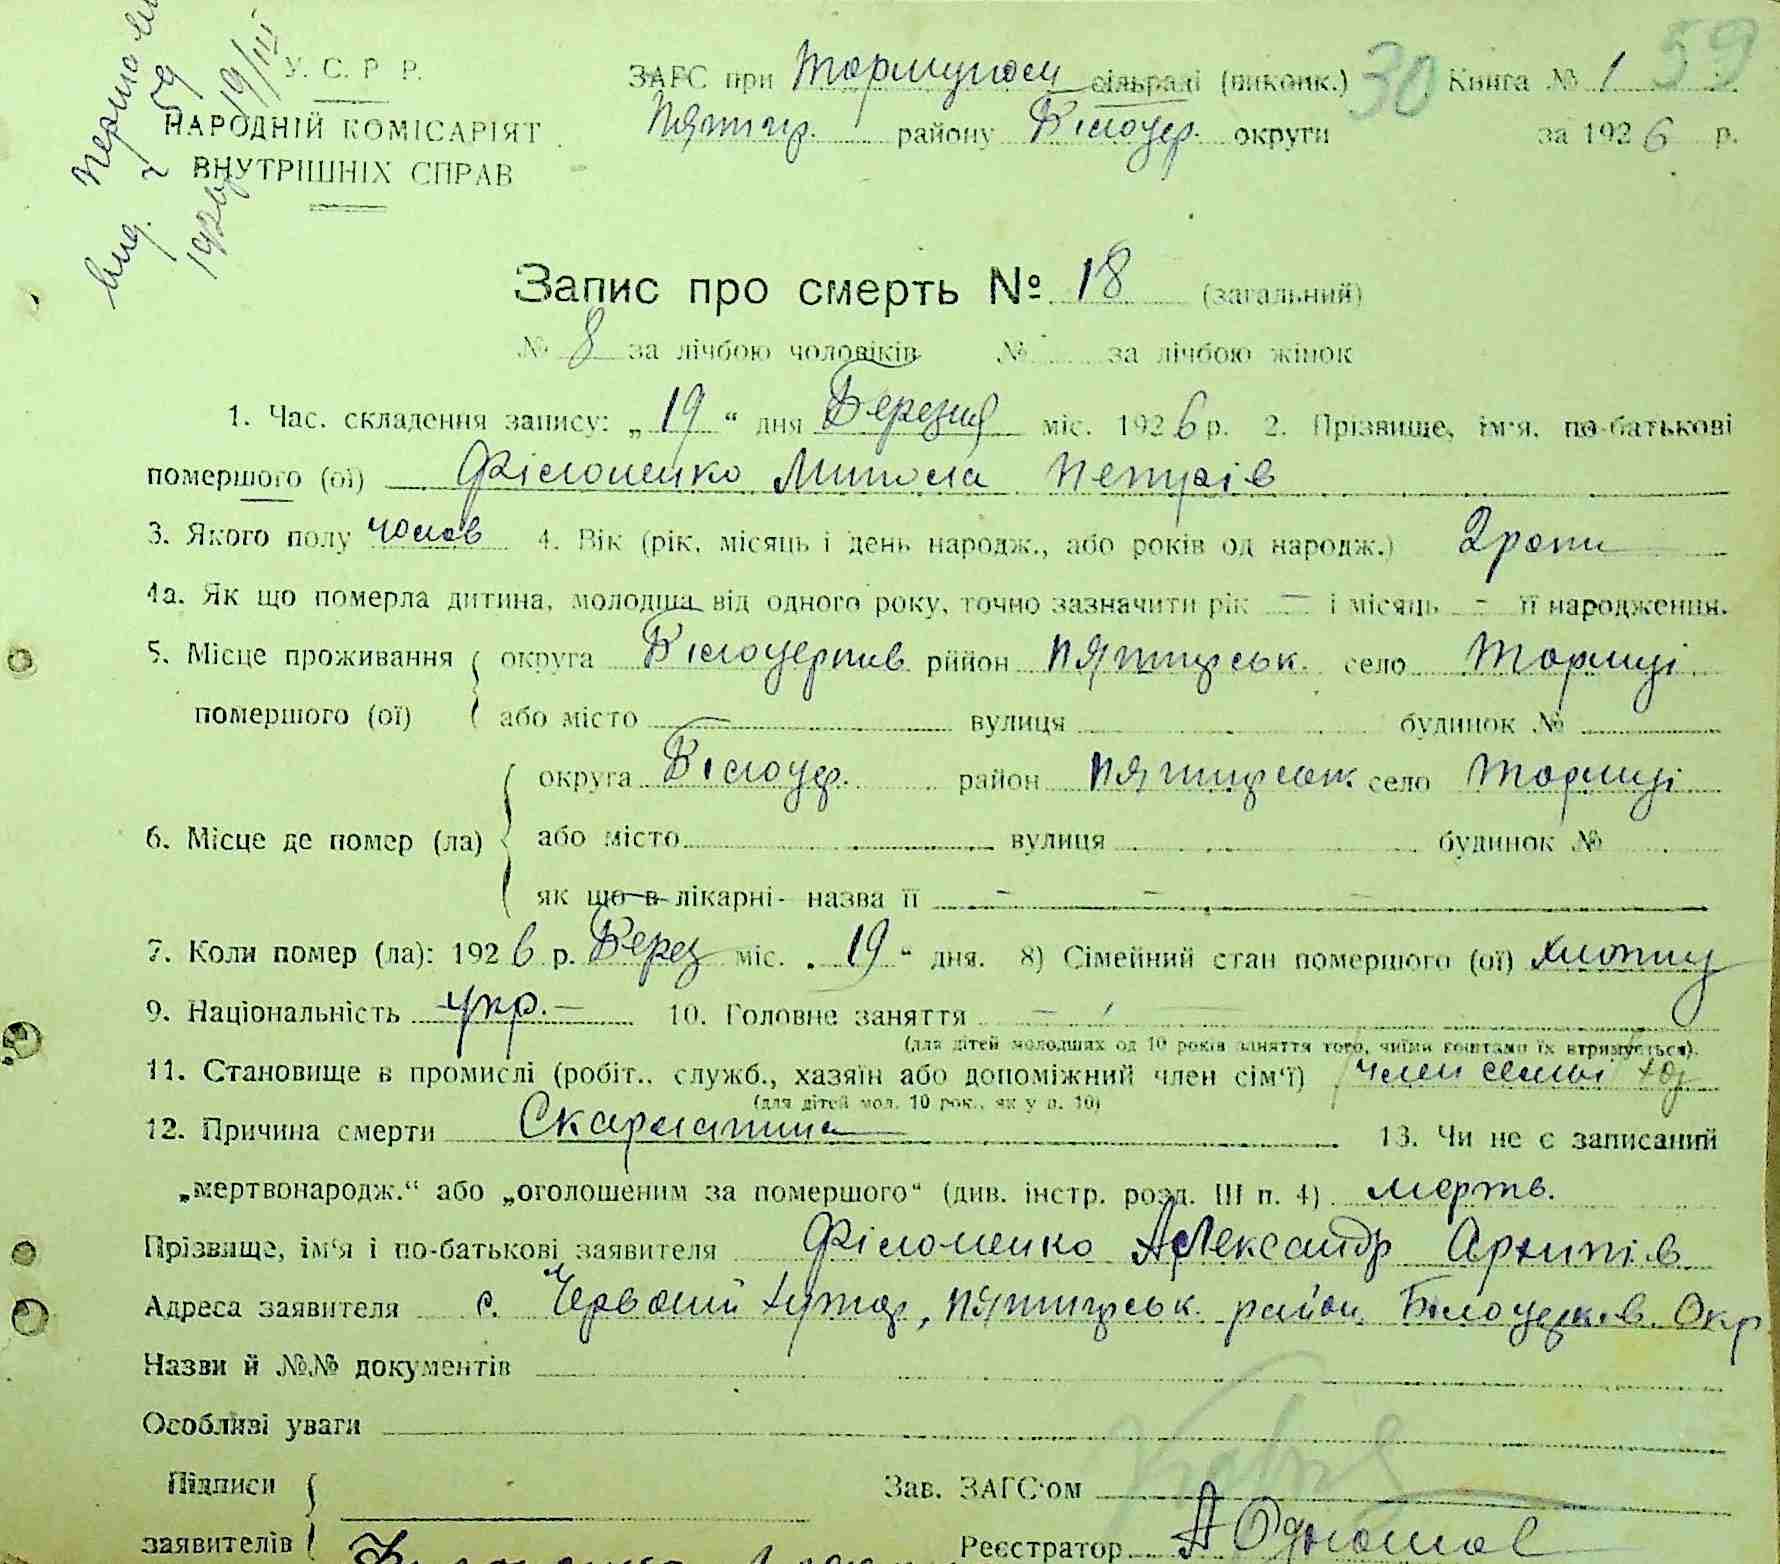 вид. № 59
1926 19/III
У. С. Р Р.
НАРОДНІЙ КОМІСАРІЯТ
ВНУТРІШНІХ СПРАВ
ЗАГС при сільраді (виконк.) 30 Книга № 1 59
Пятигр. району Білоцер. округи за 1926 р.
Запис про смерть № 18 (загальний)
№ 8 за лічбою чоловіків № за лічбою жінок
1. Час. складення запису: „19“ дня Березня міс. 1926 р. 2. Прізвище, ім'я, по-батькові
помершого (ої) Філоненко Микола Петрів
3. Якого полу чолов 4. Вік (рік, місяць і день народж., або років од народж.) 2 роки
4а. Як що померла дитина, молодша від одного року, точно зазначити рік — і місяць - її народження.
5. Місце проживання округа Білоцерків. район Пятигорськ. село Ториці
помершого (ої) або місто — вулиця будинок №
округа Білоцер. район Пятигорськ село Ториці
6. Місце де помер (ла) або місто вулиця будинок №
як що в лікарні - назва її — — —
7. Коли помер (ла): 1926 р. Берез міс. „19“ дня. 8) Сімейний стан помершого (ої) хлопец
9. Національність укр. — 10. Головне заняття —
(для дітей молодших од 10 років заняття того, чиїми коштами їх втримується).
11. Становище в промислі (робіт., служб., хазяїн або допоміжний член сім'ї) член семьї хаз
(для дітей мол. 10 рок., як у п. 10)
12. Причина смерти Скарлатина 13. Чи не є записаний
„мертвонародж.“ або „оголошеним за помершого“ (див. інстр. розд. III п. 4) мертв.
Прізвище, ім'я і по-батькові заявителя Філоненко Александр Архипів
Адреса заявителя с. Червоний хутор, Пятигорськ. район, Білоцерків. Окр
Назви й №№ документів
Особливі уваги
Підписи Зав. ЗАГС'ом
заявителів Реєстратор